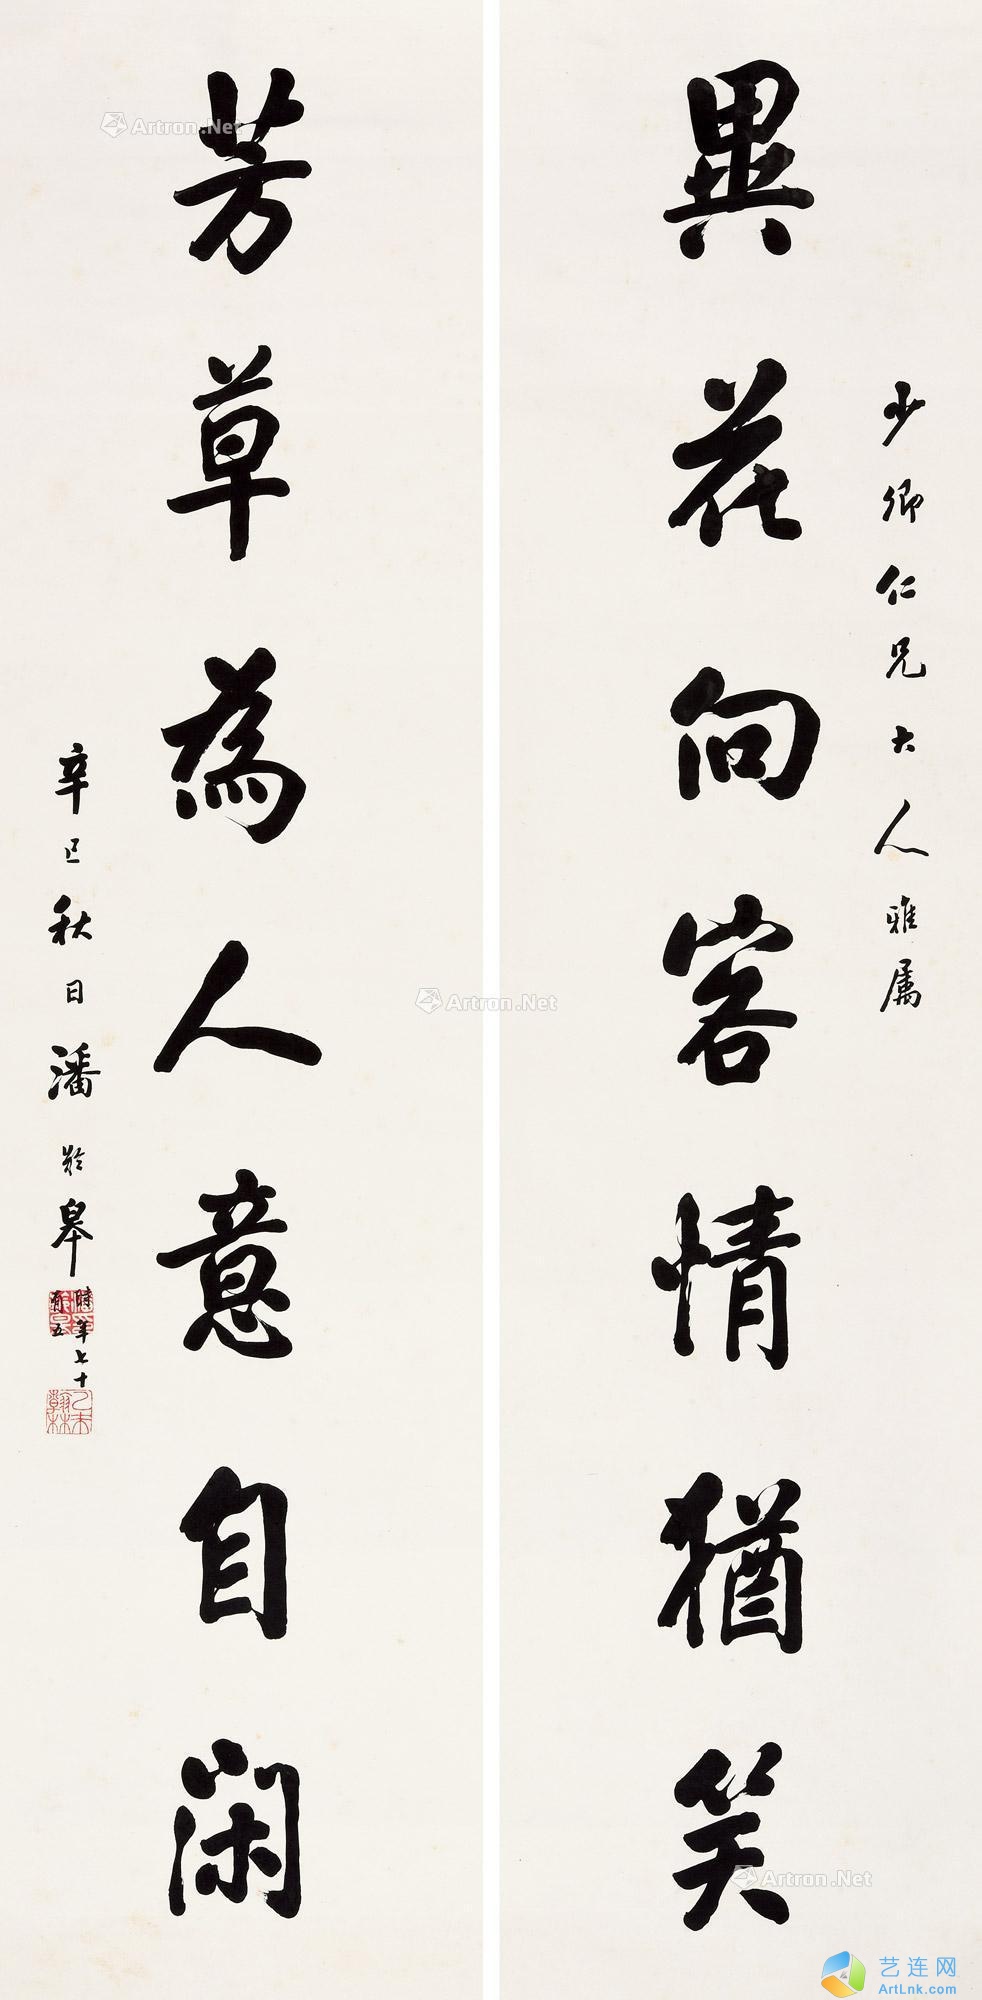 少卿仁兄大人雅属
異花向客情猶笑
芳草為人意自闲
辛巳秋日潘龄皋
時年七十
有五
乙未翰林
Artron.Net
Artron.Net
Artron.Net
艺连网
ArtLnk.com